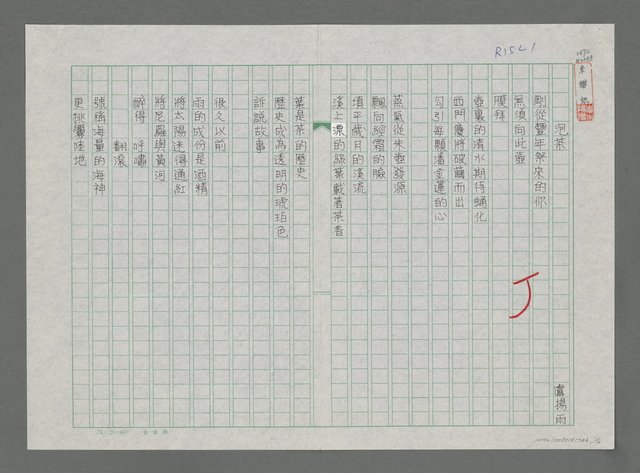 泡茶
盧揚雨
剛從豐年祭來的你
無須向此壺
膜拜
壺裏的清水期待蛹化
西門慶將破繭而出
勾引每顆潘金蓮的心
蒸氣從朱壺發源
飄向經霜的臉
填平歲月的溪流
溪上漂的綠葉載著茶香
葉是茶的歷史
歷史成為透明的琥珀色
訴說故事
很久以前
雨的成份是酒精
將太陽迷得通紅
將尼羅與黃河
醉得 呼嘯
翻滾
號稱海量的海神
更挑釁陸地
R15L1